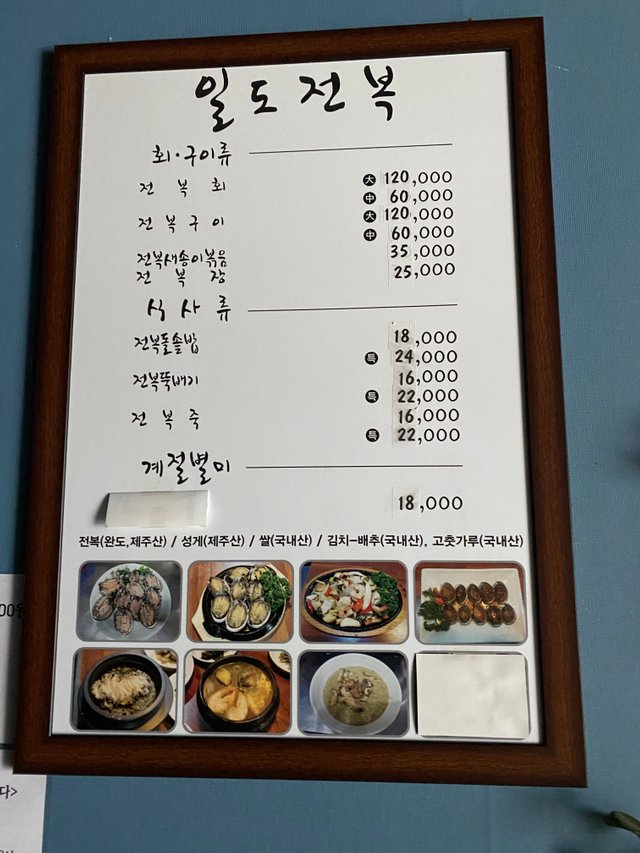 일도전복
회·구이류
전복회 大 120,000
中 60,000
전복구이 大 120,000
中 60,000
전복새송이볶음 35,000
전복장 25,000
식사류
전복돌솥밥 18,000
특 24,000
전복뚝배기 16,000
특 22,000
전복죽 16,000
특 22,000
계절별미
18,000
전복(완도,제주산) / 성게(제주산) / 쌀(국내산) / 김치-배추(국내산), 고춧가루(국내산)
다>